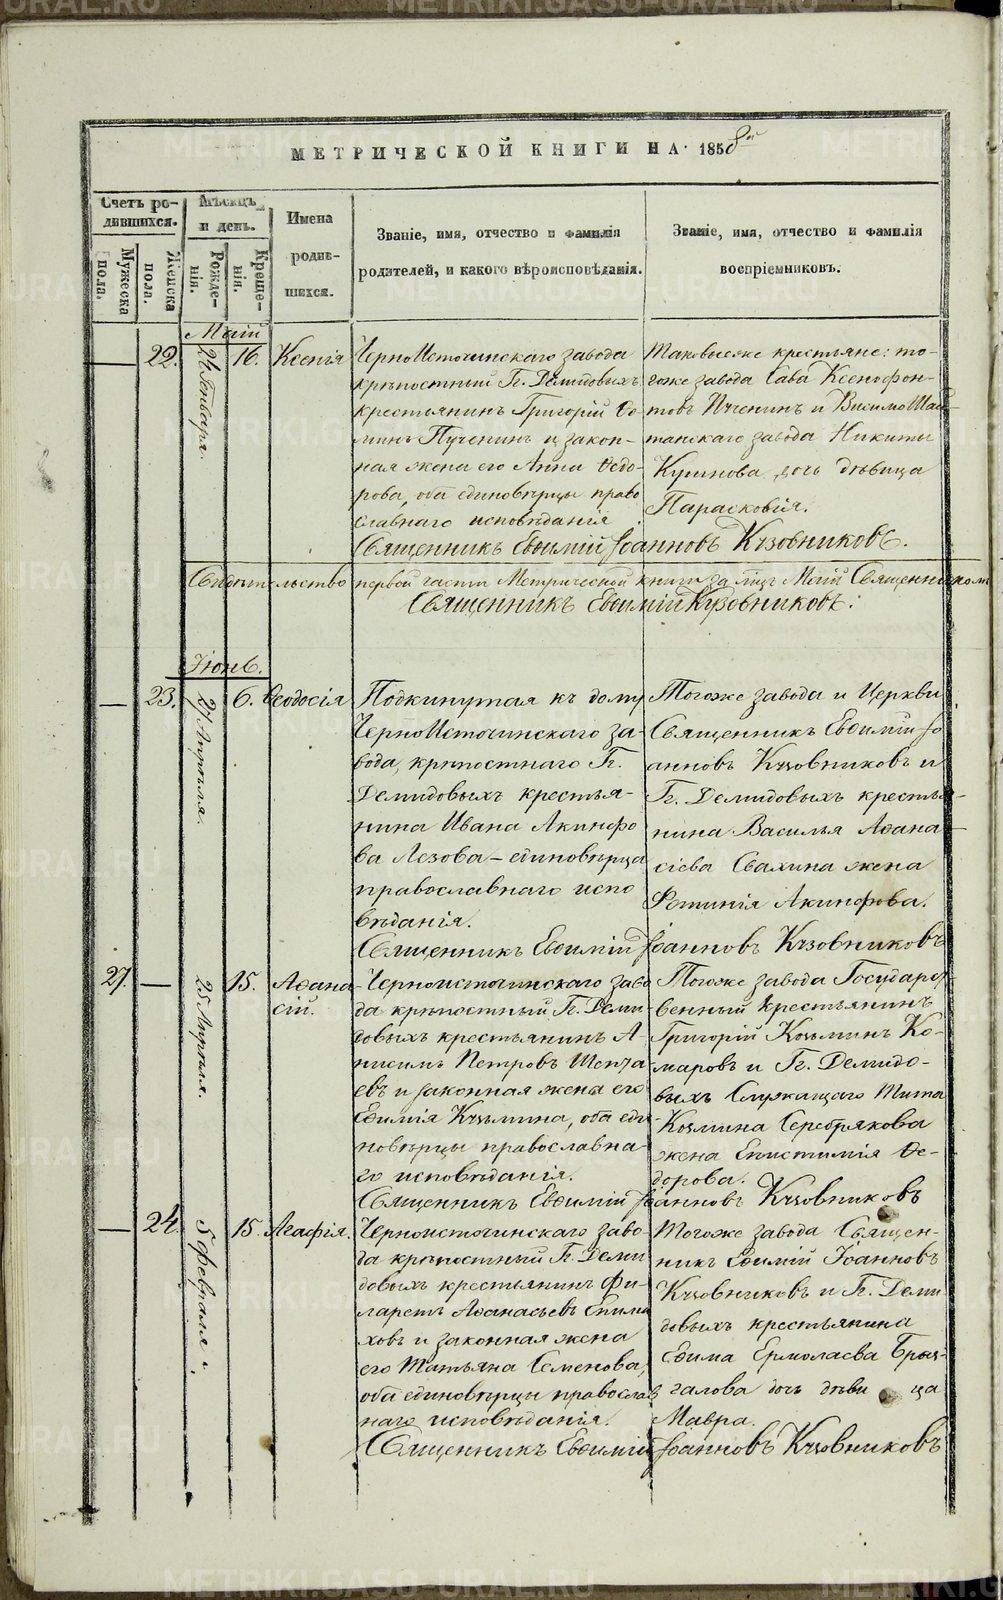 METRIKI.GASU-URAL.RU
МЕТРИЧЕСКОЙ КНИГИ НА 1858й
Счетъ ро-
дившихся.
Мѣсяцъ
и день.
Имена
родив-
шихся.
Званіе, имя, отчество и фамилія
родителей, и какого вѣроисповѣданія.
Званіе, имя, отчество и фамилія
воспріемниковъ.
Мужеска
пола.
Женска
пола.
Рожде-
нія.
Креще-
нія.
Маій
22.
24 Генваря
16.
Ксенія
ЧерноИсточинскаго завода
крѣпостный Гг. Демидовыхъ
крестьянинъ Григорій Ѳо-
минъ Пученинъ и закон-
ная жена его Анна Ѳедо-
рова, оба единовѣрцы право
славнаго исповѣданія
Таковыеже крестьяне: то-
гоже завода Сава Ксенофон-
товъ Пученинъ и ВисимоШай-
танскаго завода Никиты
дочь дѣвица
Парасковія.
Священникъ Евѳимій Іоанновъ Кузовниковъ.
Свидѣтельство первой части Метрической книги за мцъ Маій
Священникъ Евѳимій Кузовниковъ.
Іюнь.
23.
27 Апрѣля
6.
Ѳеодосія
Подкинутая къ дому
ЧерноИсточинскаго за-
вода, крѣпостнаго Гг.
Демидовыхъ крестья-
нина Ивана Акинфо
ва Лезова – единовѣрца
православнаго испо
вѣданія.
Тогоже завода и Церкви
Священникъ Евѳимій Іо
анновъ Кузовниковъ и
Гг. Демидовыхъ крестья-
нина Василья Аѳана-
сіева Свахина жена
Фотинія Акинфова.
Священникъ Евѳимій Іоанновъ Кузовниковъ
27.
25 Апрѣля.
15.
Аѳана
сій.
Черноисточинскаго заво
да крѣпостный Гг. Деми
довыхъ крестьянинъ А-
нисимъ Петровъ
евъ и законная жена его
Евимія Кузьмина, оба еди
новѣрцы православна-
го исповѣданія.
Тогоже завода Государст
венный крестьянинъ
Григорій Козьминъ Ко-
маровъ и Гг. Демидо-
выхъ Служащаго Тита
Козмина Серебрякова
жена Епистимія Ѳе-
дорова.
Священникъ Евѳимій Іоанновъ Кузовниковъ
24.
5 февраля
15.
Агафія.
Черноисточинскаго заво-
да крѣпостный Гг. Деми
довыхъ крестьянинъ Фи-
ларетъ Аѳанасьевъ Епима
ховъ и законная жена
его Татьяна Семенова,
оба единовѣрцы православ
наго исповѣданія.
Тогоже завода Священ-
никъ Евѳимій Іоанновъ
Кузовниковъ и Гг. Деми
довыхъ крестьянина
Евима Ермолаева Брыз-
галова дочь дѣвица
Мавра.
Священникъ Евѳимій Іоанновъ Кузовниковъ
METRIKI.GASU-URAL.RU